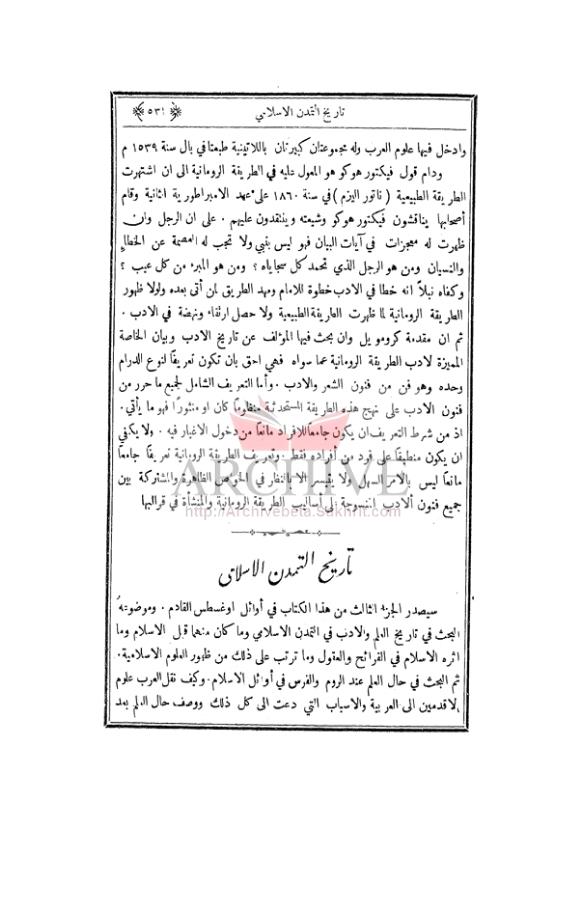 تاريخ التمدن الاسلامي
٥٣١
وادخل فيها علوم العرب وله مجموعتان كبيرتان باللاتينية طبعتا في بال سنة ١٥٣٩ م
ودام قول فيكتور هوكو هو المعول عليه في الطريقة الرومانية الى ان اشتهرت
الطريقة الطبيعية ( ناتور اليزم ) في سنة ١٨٦٠ على عهد الامبراطورية الثانية وقام
أصحابها يناقشون فيكتور هوكو وشيعته وينتقدون عليهم . على ان الرجل وان
ظهرت له معجزات في آيات البيان فهو ليس بنبي ولا تجب له العصمة عن الخطإ
والنسيان ومن هو الرجل الذي تحمد كل سجاياه ؟ ومن هو المبرء من كل عيب ؟
وكفاه نبلاً انه خطا في الادب خطوة للامام ومهد الطريق لمن أتى بعده ولولا ظهور
الطريقة الرومانية لما ظهرت الطريقة الطبيعية ولا حصل ارتقاء ونهضة في الادب .
ثم ان مقدمة كرومويل وان بحث فيها المؤلف عن تاريخ الادب وبيان الخاصة
المميزة لادب الطريقة الرومانية عما سواه فهي احق بان تكون تعريفًا لنوع الدرام
وحده وهو فن من فنون الشعر والادب . وأما التعريف الشامل لجميع ما حرر من
فنون الادب على نهج هذه الطريقة المستحدثة منظومًا كان او منثورًا فهو ما يأتي .
اذ من شرط التعريف ان يكون جامعًا للافراد مانعًا من دخول الاغيار فيه . ولا يكفي
ان يكون منطبقًا على فرد من أفراده فقط . وتعريف الطريقة الرومانية تعريفًا جامعًا
مانعًا ليس بالامر السهل ولا يتيسر الا بالنظر في الخواص الظاهرة والمشتركة بين
جميع فنون الادب المنسوجة على أساليب الطريقة الرومانية والمنشأة في قوالبها
ARCHIVE
http://Archivebeta.Sakhrit.com
تاريخ التمدن الاسلامي
سيصدر الجزء الثالث من هذا الكتاب في أوائل اوغسطس القادم . وموضوعه
البحث في تاريخ العلم والادب في التمدن الاسلامي وما كان منهما قبل الاسلام وما
اثره الاسلام في القرائح والعقول وما ترتب على ذلك من ظهور العلوم الاسلامية .
ثم البحث في حال العلم عند الروم والفرس في أوائل الاسلام . وكيف نقل العرب علوم
الاقدمين الى العربية والاسباب التي دعت الى كل ذلك ووصف حال العلم بعد